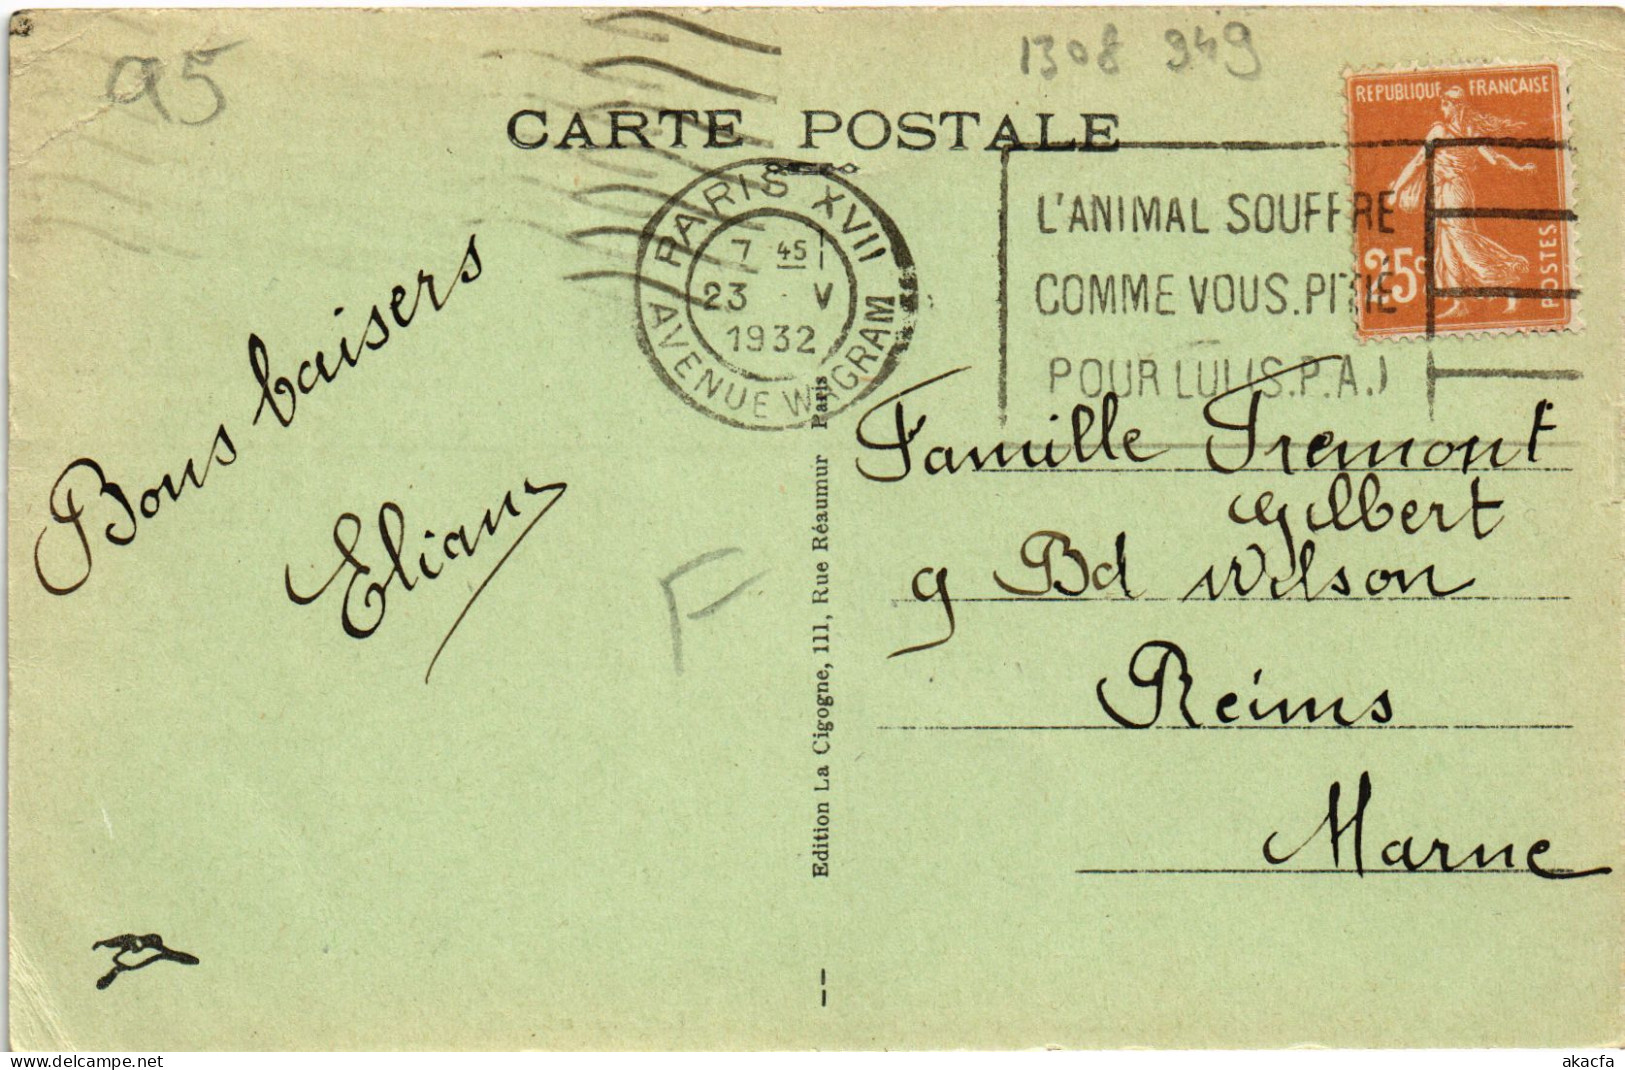 95
1308 949
CARTE POSTALE
REPUBLIQUE FRANÇAISE
25c
POSTES
PARIS XVII
7 45
23 V
1932
AVENUE WAGRAM
L'ANIMAL SOUFFRE
COMME VOUS.PITIÉ
POUR LUI (S.P.A.)
Bons baisers
Eliane
F
Edition La Cigogne, 111, Rue Réaumur Paris
Famille Tremont
Gilbert
9 Bd Wilson
Reims
Marne
www.delcampe.net
akacfa